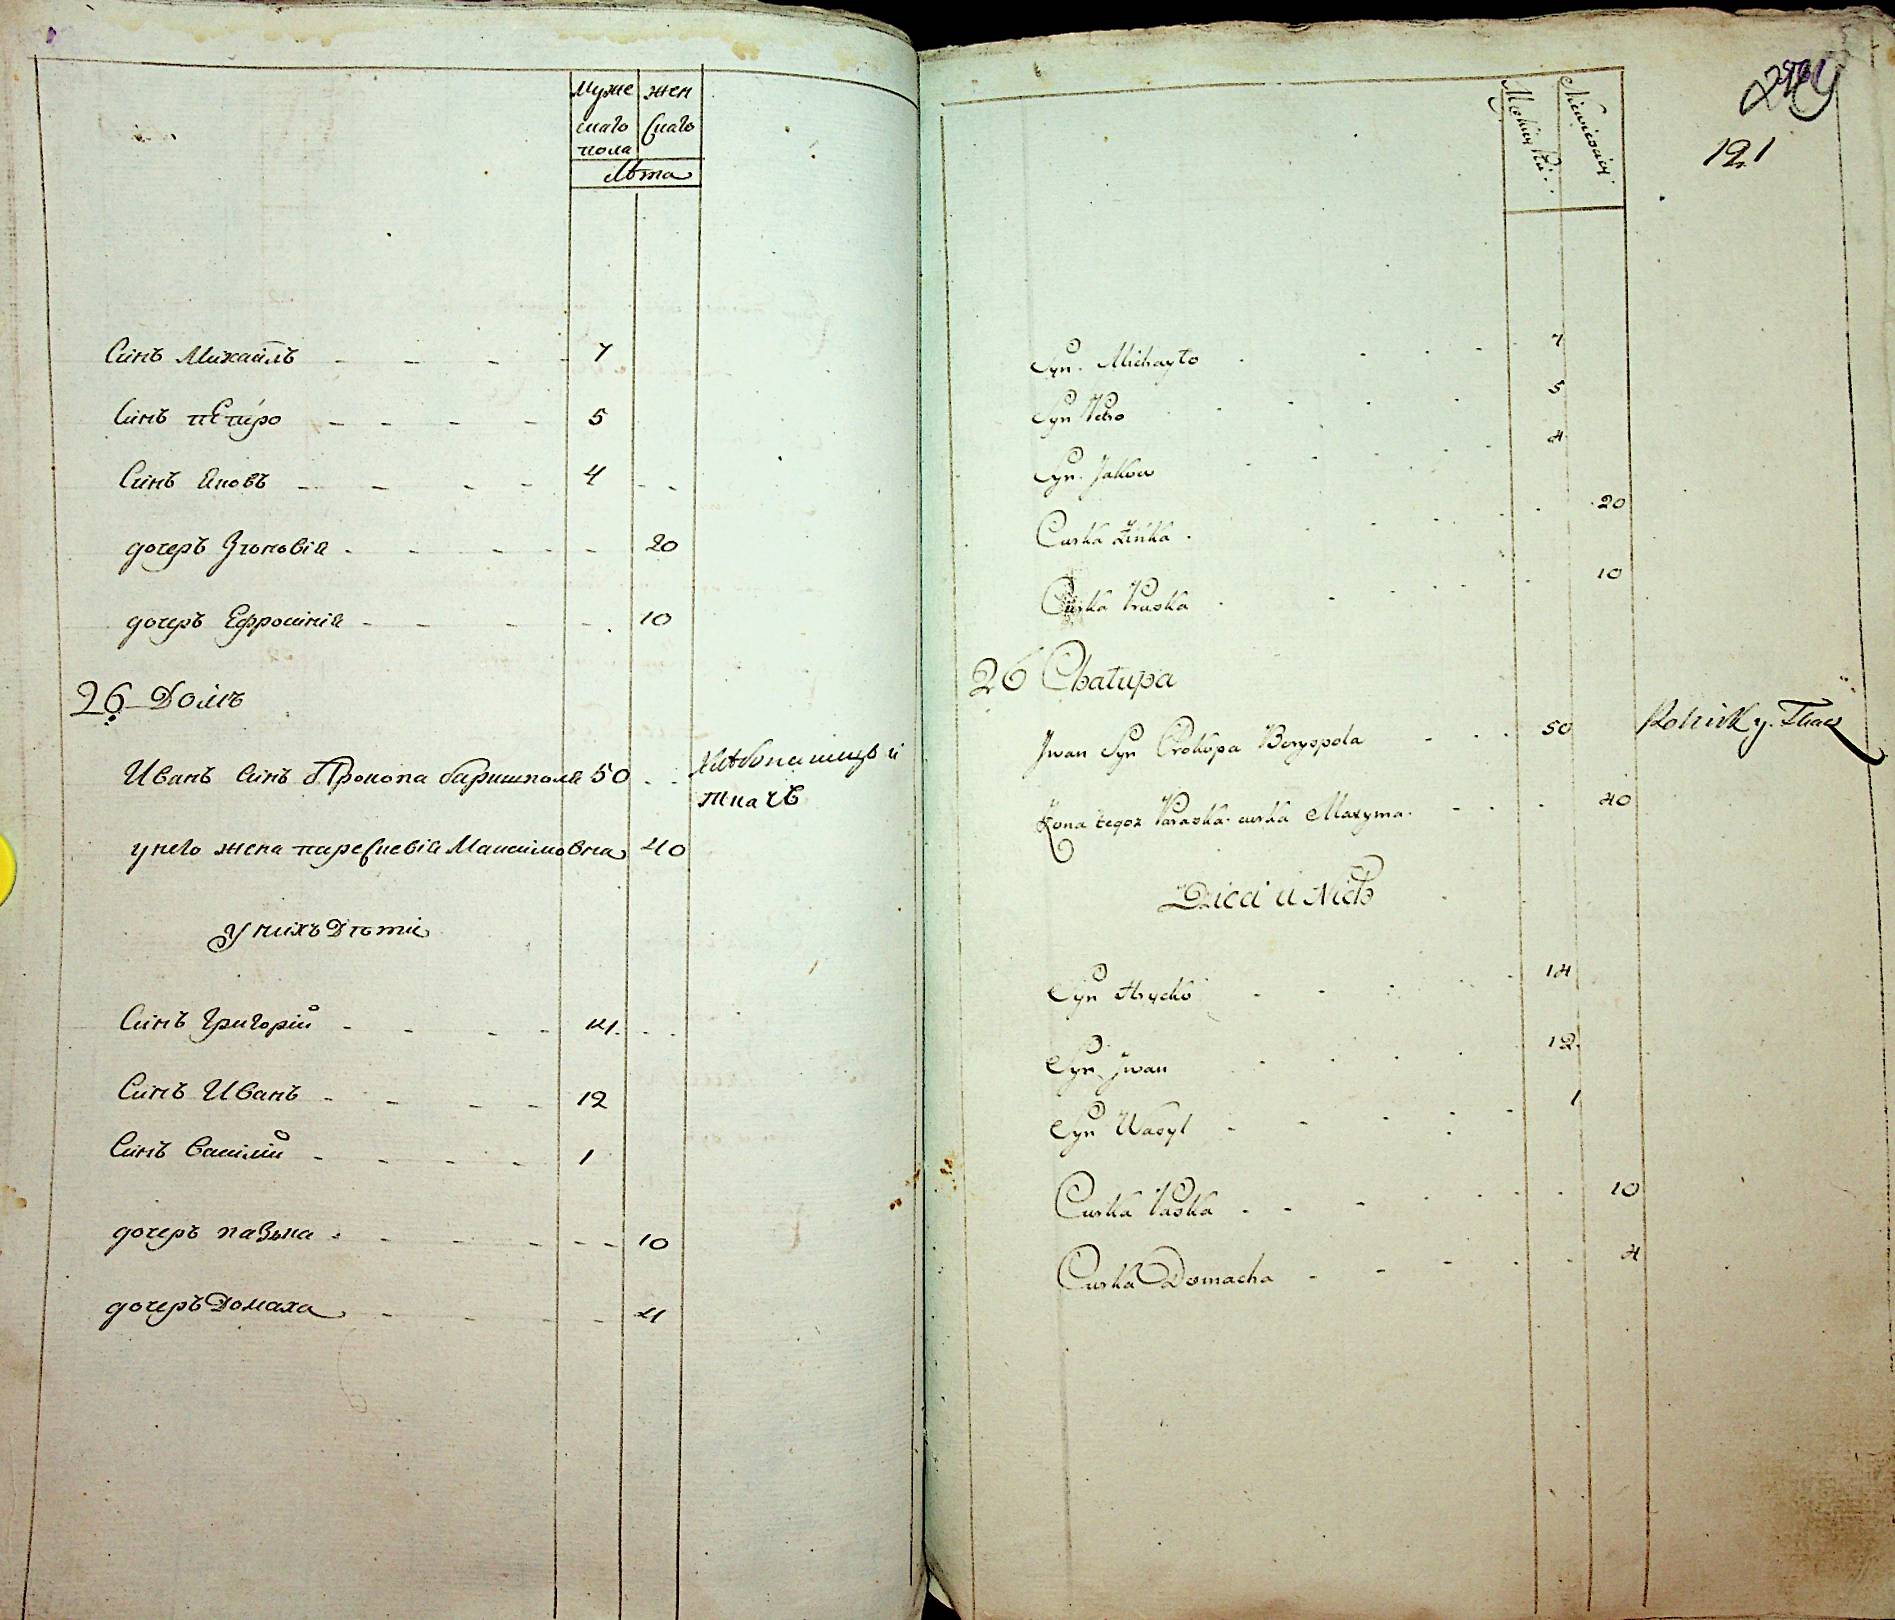 Муже жен
скаго скаго
пола
лѣта
Синъ Михаилъ 7
Синъ пЕтро 5
Синъ Яковъ 4
дочеръ Зѣновія 20
дочеръ Ефросинія 10
26 Домъ
Иванъ Синъ Прокопа баришполя 50 Хлѣбопашецъ и
ткачЪ
у него жена параскевія Максимовна 40
у нихъ Дѣти
Синъ Григорій 14
Синъ Иванъ 12
Синъ Василій 1
дочеръ паЗька 10
дочеръ Домаха 4
121
Syn Michayło 7
Syn Petro 5
Syn Jakow 4
Curka Zinka 20
Curka Pruska 10
26 Chałupa
Jwan Syn Prokopa Boryspola 50 Rolnik y Tkacz
Zona tegoz Paraska curka Maxyma 40
Dzieci u Nich
Syn Hrycko 14
Syn Jwan 12
Syn Wasyl 1
Curka Paska 10
Curka Domacha 4